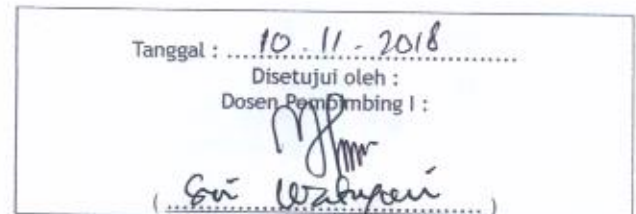 Tanggal : 10 . 11 . 2018
Disetujui oleh :
Dosen Pembimbing I :
( Sri )